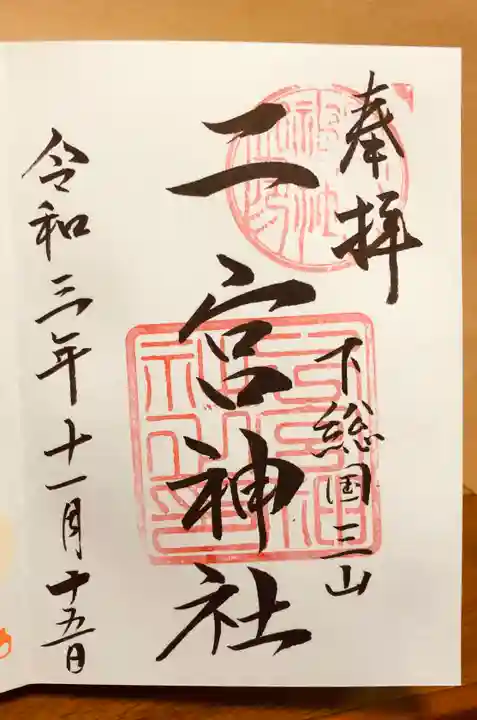 奉拝
下総国三山
二宮神社
令和三年十一月十五日